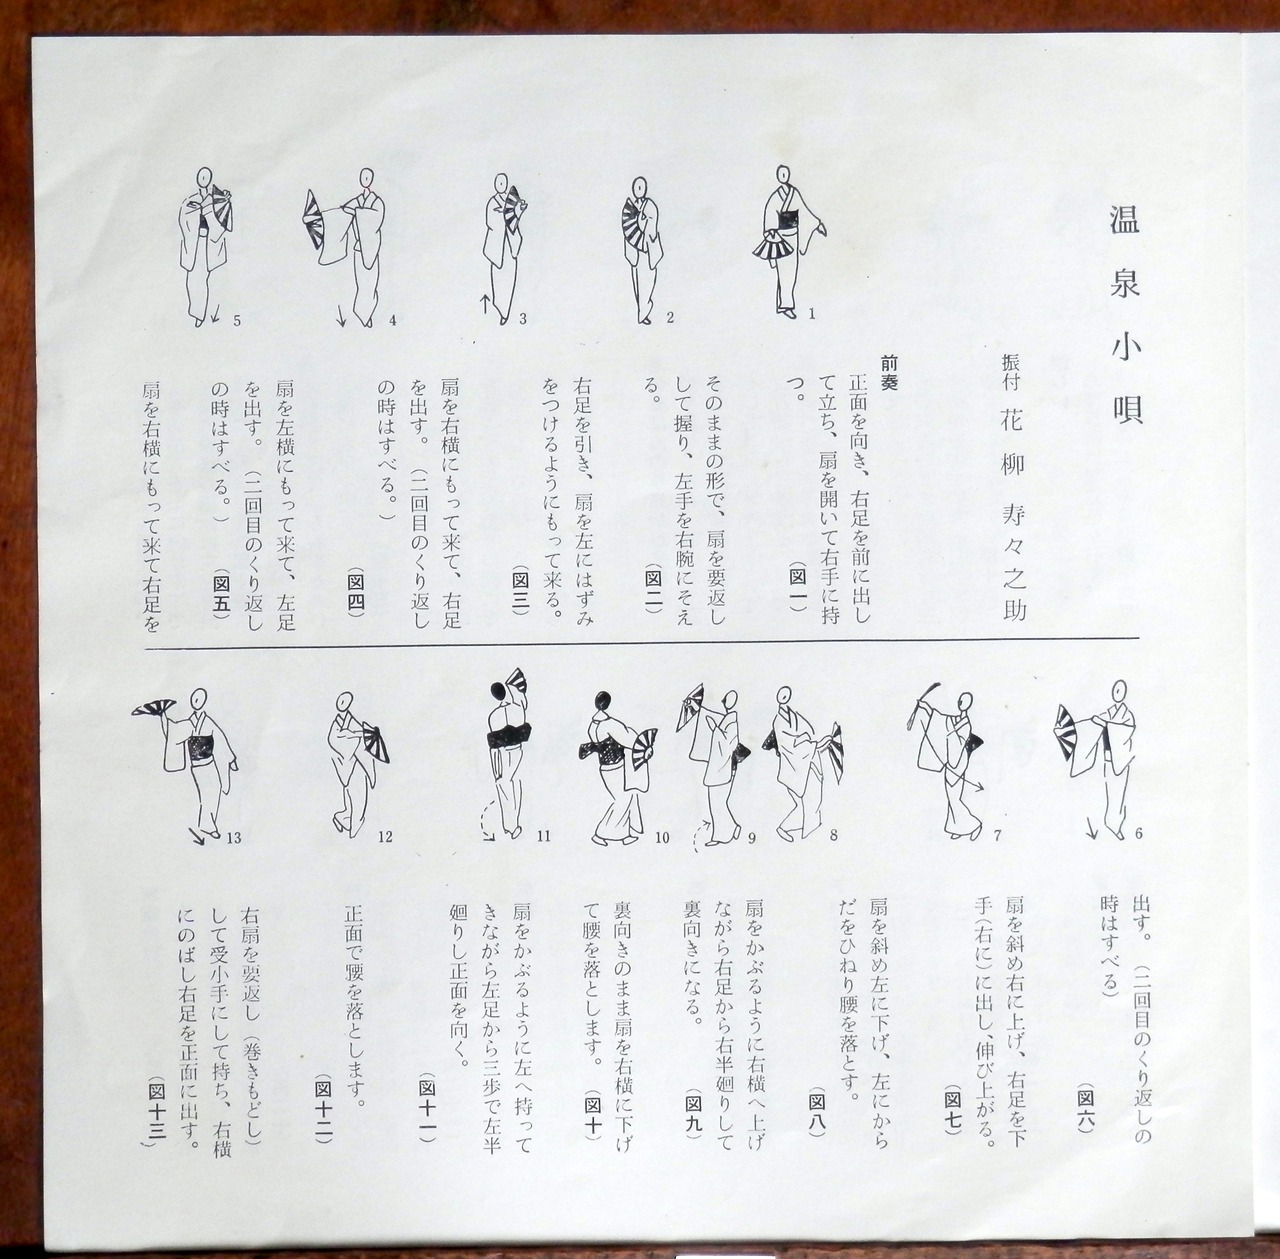 温泉小唄
振付 花柳寿々之助
前奏
正面を向き、右足を前に出し
て立ち、扇を開いて右手に持
つ。
（図一）
そのままの形で、扇を要返し
して握り、左手を右腕にそえ
る。
（図二）
右足を引き、扇を左にはずみ
をつけるようにもって来る。
（図三）
扇を右横にもって来て、右足
を出す。（二回目のくり返し
の時はすべる。）
（図四）
扇を左横にもって来て、左足
を出す。（二回目のくり返し
の時はすべる。）
（図五）
扇を右横にもって来て右足を
1
2
3
4
5
出す。（二回目のくり返しの
時はすべる）
（図六）
扇を斜め右に上げ、右足を下
手（右に）に出し、伸び上がる。
（図七）
扇を斜め左に下げ、左にから
だをひねり腰を落とす。
（図八）
扇をかぶるように右横へ上げ
ながら右足から右半廻りして
裏向きになる。
（図九）
裏向きのまま扇を右横に下げ
て腰を落とします。
（図十）
扇をかぶるように左へ持って
きながら左足から三歩で左半
廻りし正面を向く。
（図十一）
正面で腰を落とします。
（図十二）
右扇を要返し（巻きもどし）
して受小手にして持ち、右横
にのばし右足を正面に出す。
（図十三）
6
7
8
9
10
11
12
13